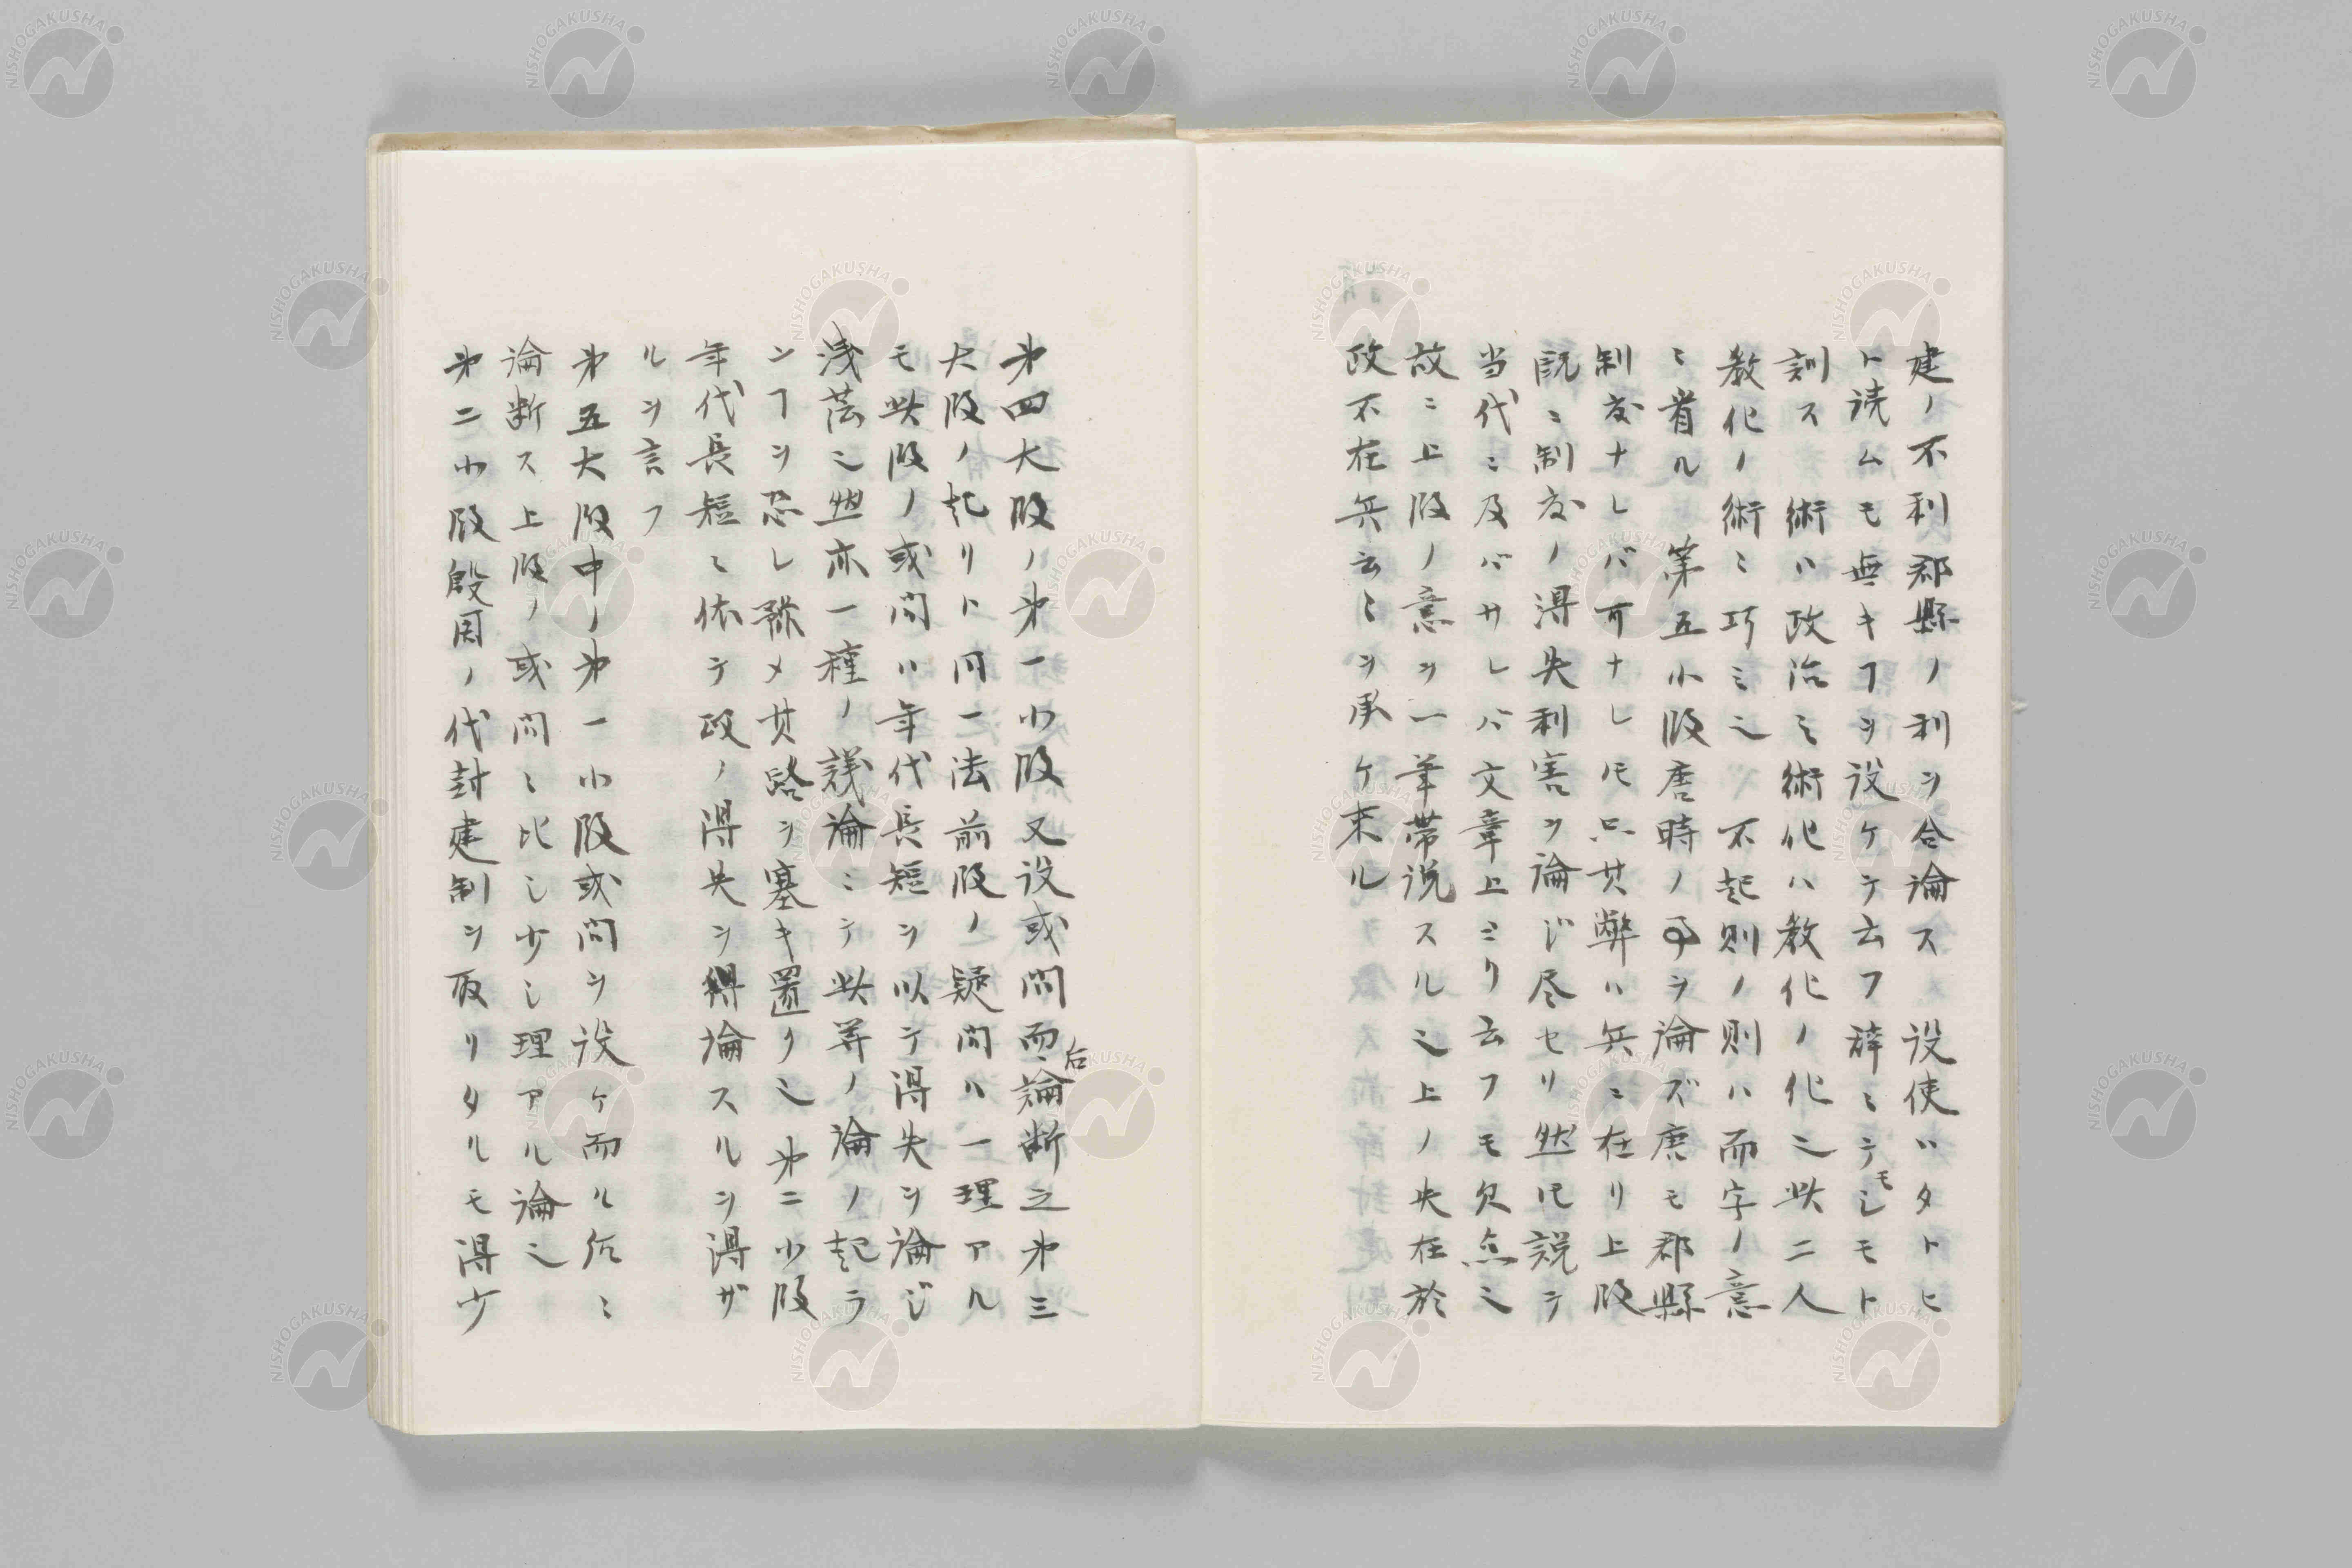 建ノ不利郡縣ノ利ヲ合論ス 設使ハタトヒ
ト読ムモ無キヿヲ設ケテ云フ辞ミテモシモト
訓ス 術ハ政治ミ術化ハ教化ノ化ミ此二人
教化ノ術ミ巧ミミ 不起則ノ則ハ而字ノ意
ミ省ル 第五小段唐時ノ事ヲ論ズ唐モ郡縣
制度ナレバ可ナレ𪜈只其弊ハ兵ニ在リ上段
既ニ制度ノ得失利害ヲ論ジ尽セリ然𪜈説テ
当代ミ及バサレバ文章上ミリ云フモ欠点ミ
故ニ上段ノ意ヲ一筆帯説スルミ上ノ失在於
政不在兵云ミヲ承ケ来ル
㐧四大段ノ㐧一小段又設或問而后論断之㐧三
大段ノ起リト同一之法前段ノ疑問ハ一理アル
モ此段ノ或問ハ年代長短ヲ以テ得失ヲ論ジ
浅薄ミ然亦一種ノ議論ミテ此等ノ論ノ起ラ
ンヿヲ恐レ豫メ其路ヲ塞キ置クミ㐧二小段
年代長短ミ依テ政ノ得失ヲ論スルヲ得ザ
ルヲ言フ
㐧五大段中ノ㐧一小段或問ヲ設ケ而ル后ミ
論断ス上段ノ或問ミ比シ少シ理アル論ミ
㐧二小段殷周ノ代封建制ヲ取リタルモ得少
NISHOGAKUSHA